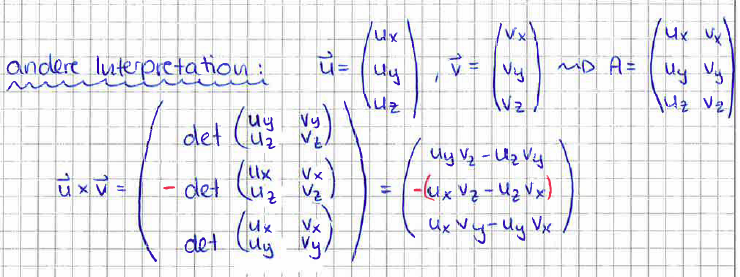 andere Interpretation: u⃗ = (ux uy uz), v⃗ = (vx vy vz) ⇝ A = (ux vx; uy vy; uz vz)
u⃗ × v⃗ = ( det (uy vy; uz vz) ; - det (ux vx; uz vz) ; det (ux vx; uy vy) ) = ( uy vz - uz vy ; -(ux vz - uz vx) ; ux vy - uy vx )